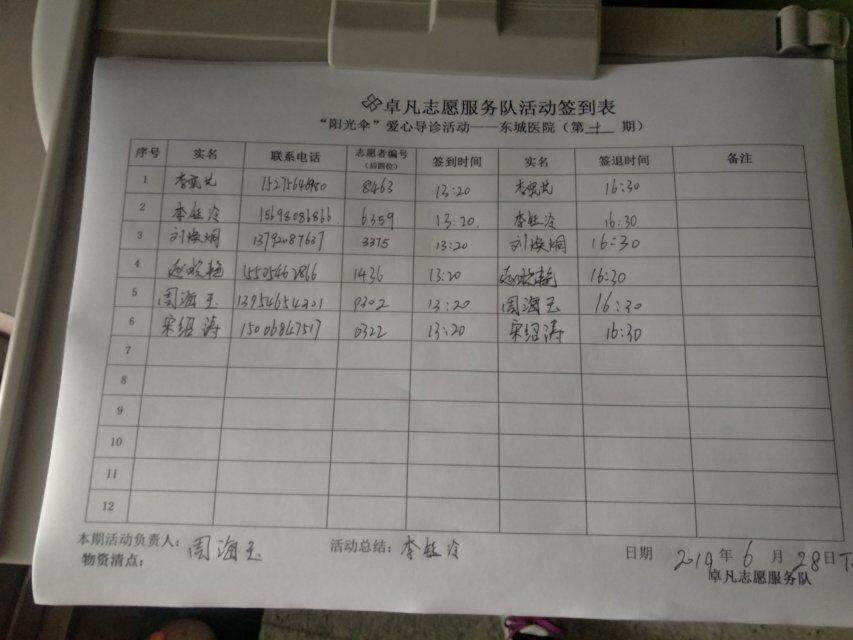 卓凡志愿服务队活动签到表
“阳光伞”爱心导诊活动——东城医院（第 十 期）
序号 实名 联系电话 志愿者编号（后四位） 签到时间 实名 签退时间 备注
1 8463 13:20 16:30
2 李钰冷 15698086866 6359 13:20 李钰冷 16:30
3 刘焕娴 13792087637 3375 13:20 刘焕娴 16:30
4 赵晓艳 15505462866 1436 13:20 赵晓艳 16:30
5 周海玉 13954654301 0302 13:20 周海玉 16:30
6 宋绍涛 15006847517 0322 13:20 宋绍涛 16:30
7
8
9
10
11
12
本期活动负责人：周海玉 活动总结：李钰冷 日期 2019年6月28日下
物资清点： 卓凡志愿服务队